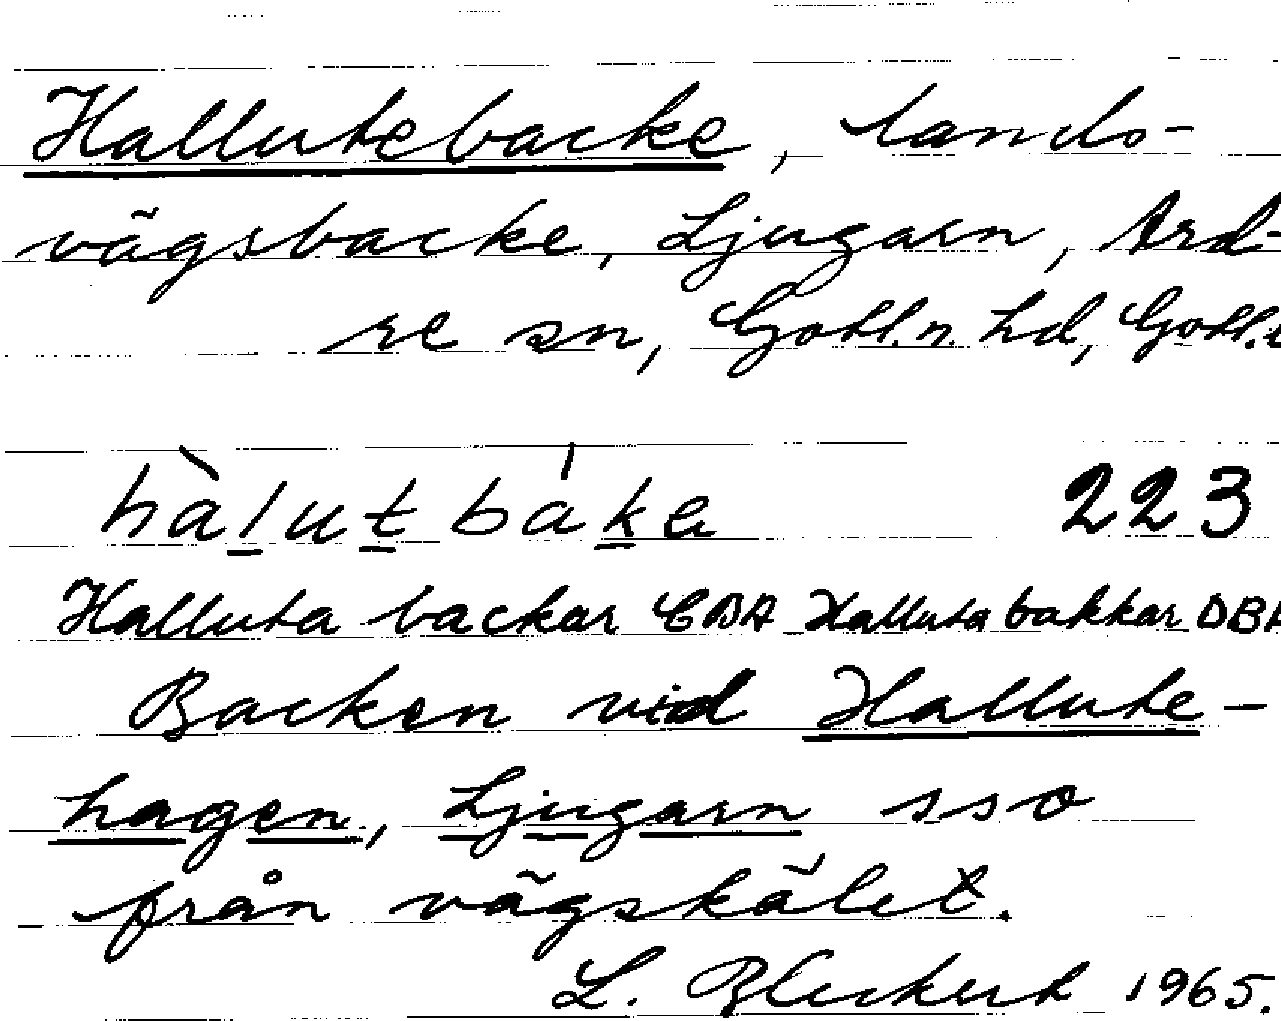 Hallutebacke, lands-
vägsbacke, Ljugarn, Ard-
re sn, Gotl.n. hd, Gotl.
hàlutbáka 223
Halluta backar EBA Hallutabakkar DBA
Backen vid Hallute-
hagen, Ljugarn sso
från vägskälet.
L. Bleckert 1965.